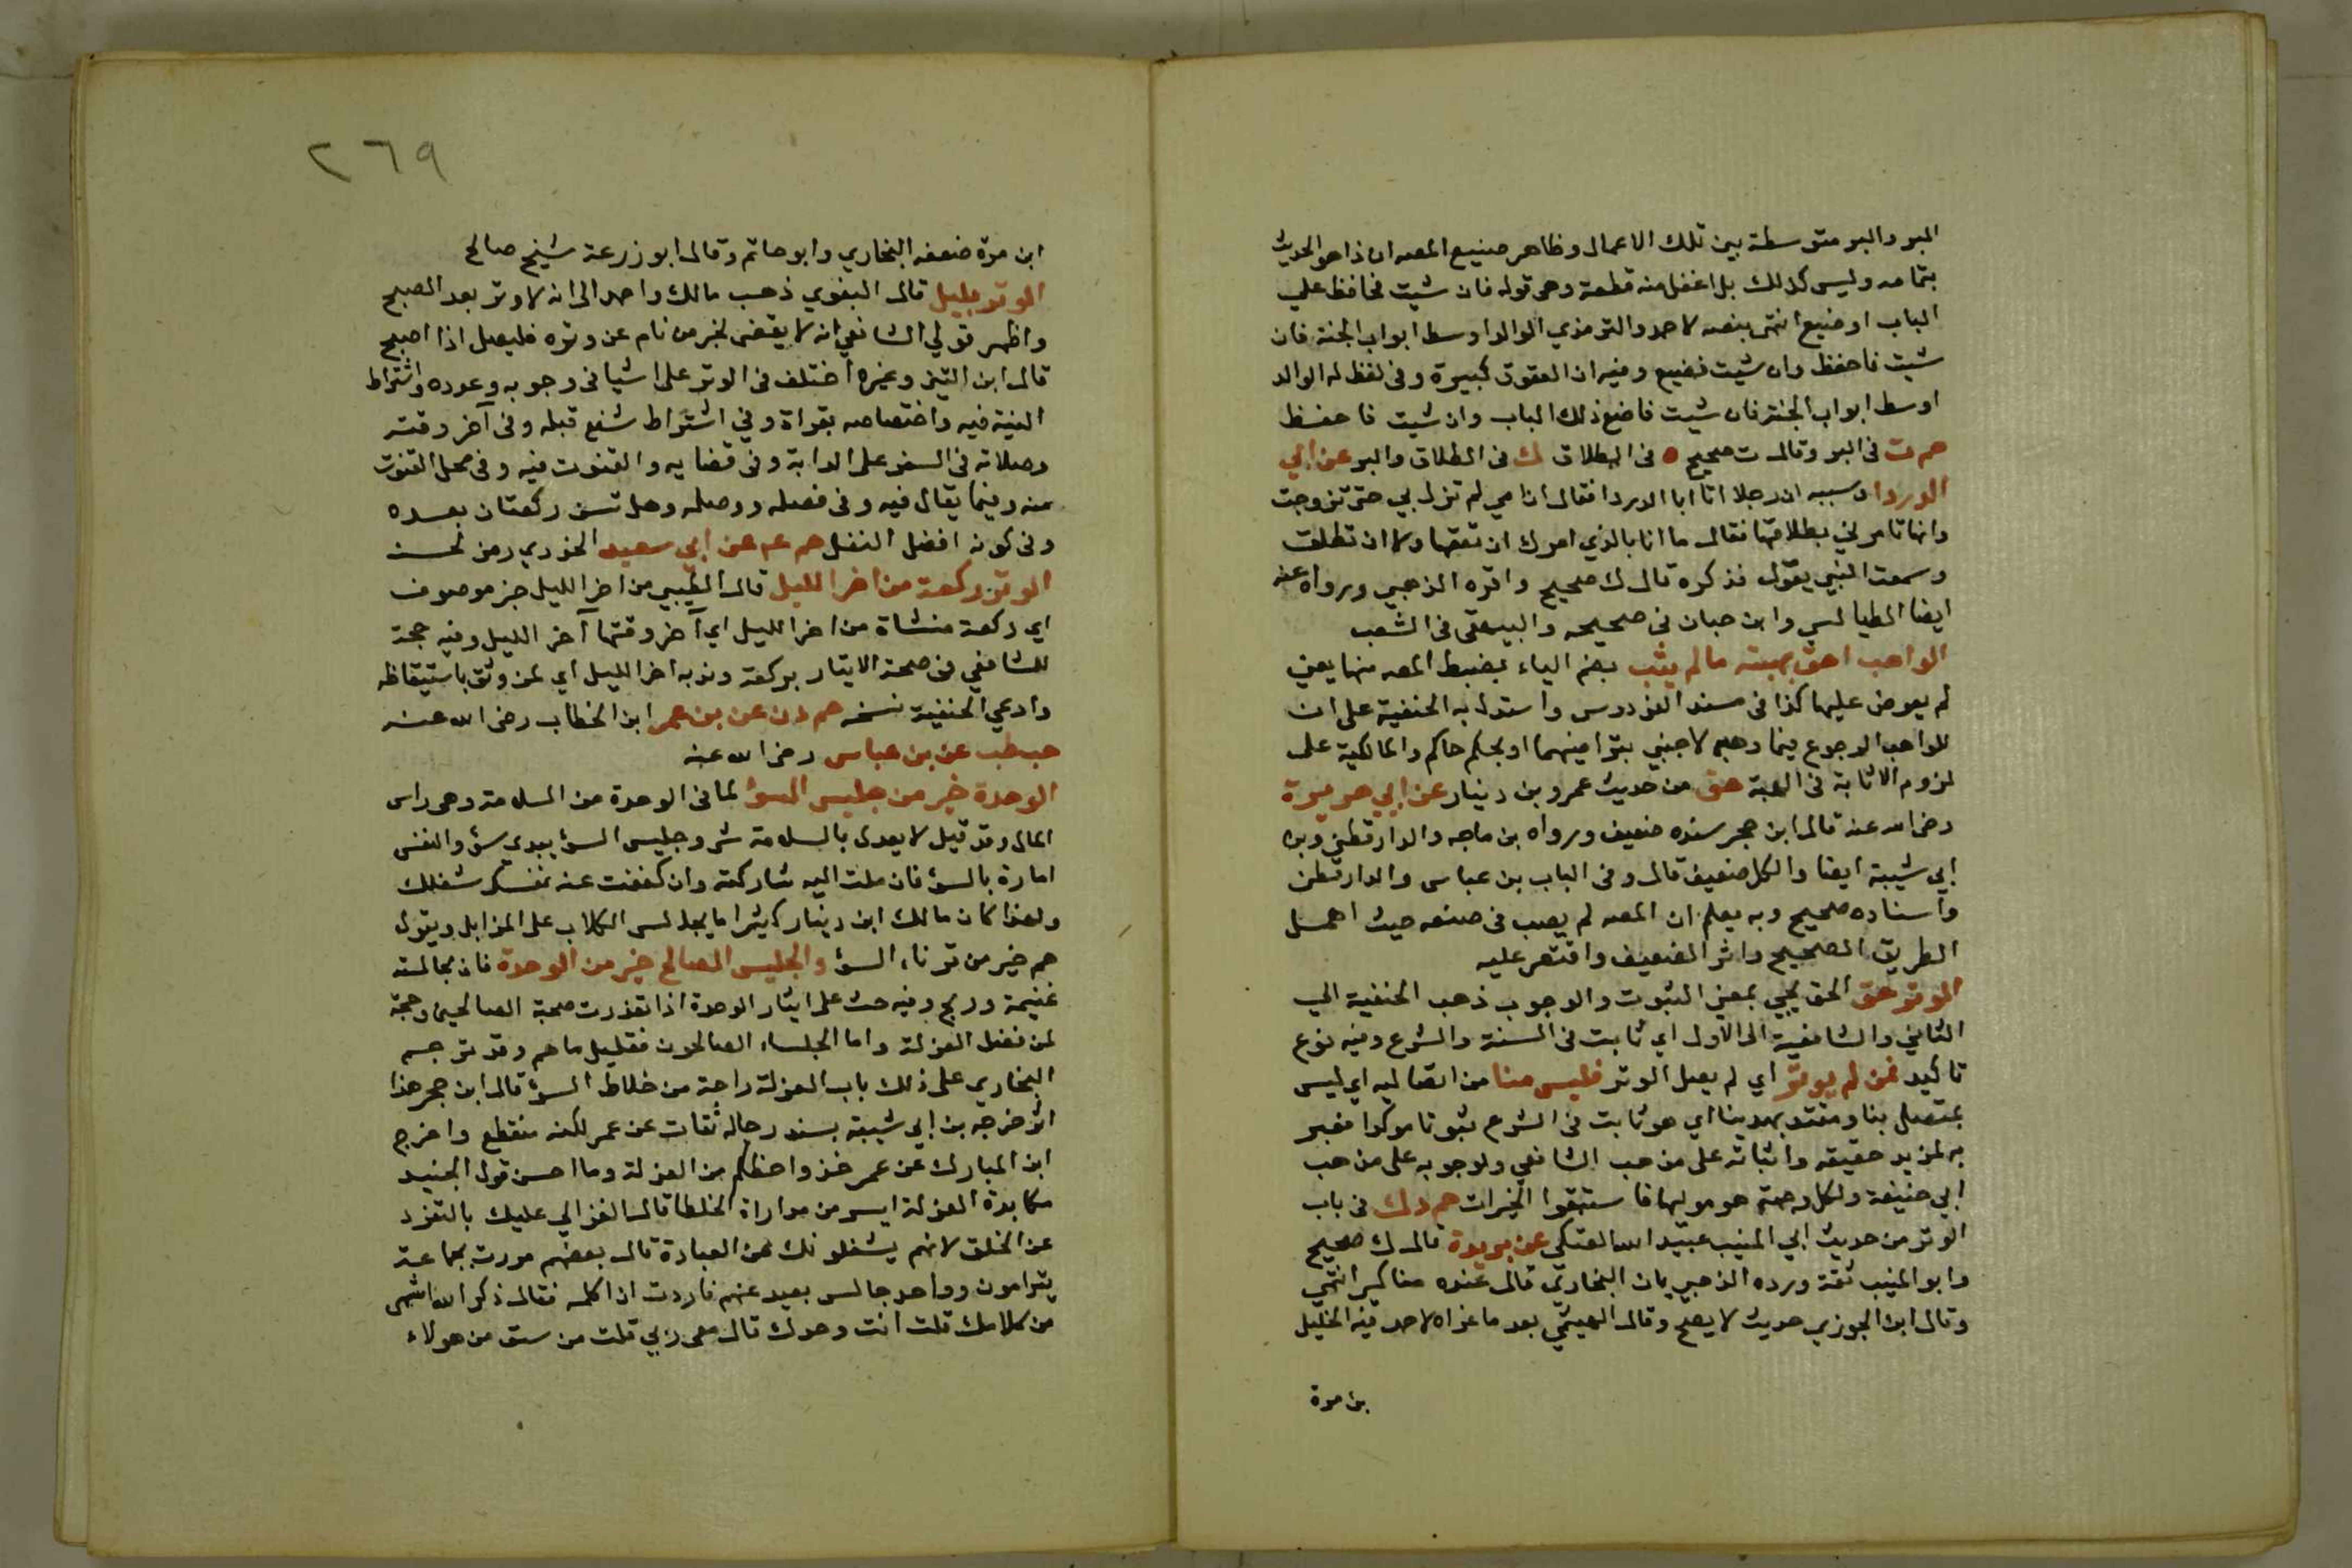 البر والبر متوسطة بين تلك الاعمال وظاهر صنيع المصه ان ذا هو الحديث
بتمامه وليس كذلك بل اغفل منه قطعة وهى قوله فان شيت فحافظ علي
الباب او ضيع انتهى بنصه لاحمد والترمذي الوالد اوسط ابواب الجنة فان
شيت فاحفظ وان شيت فضيع وفيه ان العقوق كبيرة وفى لفظ له الوالد
اوسط ابواب الجنة فان شيت فاضع ذلك الباب وان شيت فاحفظ
حم ت فى البر وقال ت صحيح ه فى الطلاق ك فى الطلاق والبر عن ابي
الدردا وسببه ان رجلا اتا ابا الدردا فقال ان امي لم تزل بي حتى تزوجت
وانها تامرني بطلاقها فقال ما انا بالذي امرك ان تعقها ولا ان تطلق
وسمعت النبي يقول فذكره قال ك صحيح واقره الذهبي ورواه عنه
ايضا الطيالسي وابن حبان فى صحيحه والبيهقى فى الشعب
الواهب احق بهبته مالم يثب بضم الياء بضبط المصه منها يعنى
لم يعوض عليها كذا فى مسند الفردوس واستدل به الحنفية على ان
للواهب الرجوع فيما وهبه لاجنبي بتراضيهما او بحكم حاكم والمالكية على
لزوم الاثابة فى الهبة هق من حديث عمرو بن دينار عن ابي هريرة
رضى الله عنه قال ابن حجر سنده ضعيف ورواه بن ماجه والدارقطنى وبن
ابي شيبة ايضا والكل ضعيف قال وفى الباب بن عباس والدارقطن
واسناده صحيح وبه يعلم ان المصه لم يصب فى صنعه حيث اهمل
الطريق الصحيح واثر الضعيف واقتصر عليه
الوتر حق الحق يجي بمعنى الثبوت والوجوب ذهب الحنفية الي
الثاني والشافعية الى الاول اي ثابت فى السنة والشرع وفيه نوع
تاكيد فمن لم يوتر اي لم يصل الوتر فليس منا من اتصالية اي ليس
بمتصل بنا ومقتد بهدينا اي هو ثابت فى الشرع ثبوتا موكدا فغير
به لمزيد حقيقه واثباته على مذهب الشافعي ولوجوبه على مذهب
ابي حنيفة ولكل وجهة هو موليها فاستبقوا الخيرات حم د ك فى باب
الوتر من حديث ابي المنيب عبيد الله العتكى عن بريدة قال ك صحيح
وابو المنيب ثقة ورده الذهبي بان البخاري قال عنده مناكير انتهى
وقال ابن الجوزي حديث لا يصح وقال الهيثمي بعد ما عزاه لاحمد فيه الخليل
بن مرة
٢٦٩
ابن مرة ضعفه البخاري وابو حاتم وقال ابو زرعة شيخ صالح
الوتر بليل قال البغوي ذهب مالك واحمد الى انه لا وتر بعد الصبح
واظهر قولي الشافعي انه لا يقضى لخبر من نام عن وتره فليصل اذا اصبح
قال ابن التين وغيره اختلف فى الوتر على اشيا فى وجوبه وعدده واشتراط
النية فيه واختصاصه بقراة وفي اشتراط شفع قبله وفى آخر وقته
وصلاته فى السفر على الدابة وفى قضايه والقنوت فيه وفى محل القنوت
منه وفيما يقال فيه وفى فصله ووصله وهل تسن ركعتان بعده
وفى كونه افضل النفل حم ع عن ابي سعيد الخدري رمز لحسنه
الوتر ركعة من اخر الليل قال الطيبي من اخر الليل خبر موصوف
اي ركعة منشاة من اخر الليل اي آخر وقتها آخر الليل وفيه حجة
للشافعي فى صحة الايتار بركعة وندبه اخر الليل اي لمن وثق باستيقاظه
وادعي الحنفية نسخه حم د ن عن بن عمر ابن الخطاب رضى الله عنه
حب طب عن بن عباس رضى الله عنه
الوحدة خير من جليس السؤ لما فى الوحدة من السلامة وهى راس
المال وقد قيل لا يعدل بالسلامة شى وجليس السؤ يبدى سؤ والنفس
امارة بالسؤ فان ملت اليه شاركته وان كففت عنه نفسك شغلك
ولهذا كان مالك ابن دينار كثيرا ما يجالس الكلاب على المزابل ويقول
هم خير من قرناء السؤ والجليس الصالح خير من الوحدة فان مجالسته
غنيمة وربح وفيه حث على ايثار الوحدة اذا تعذرت صحبة الصالحين وحجة
لمن فضل العزلة واما الجلساء الصالحون فقليل ما هم وقد ترجم
البخاري على ذلك باب العزلة راحة من خلاط السؤ قال ابن حجر هذا
اثر خرجه بن ابي شيبة بسند رجاله ثقات عن عمر لكنه منقطع واخرج
ابن المبارك عن عمر خذوا حظكم من العزلة وما احسن قول الجنيد
مكابدة العزلة ايسر من مداراة الخلطا قال الغزالي عليك بالتفرد
عن الخلق لانهم يشغلونك عن العبادة قال بعضهم مررت بجماعة
يترامون وواحد جالس بعيد عنهم فاردت ان اكلمه فقال ذكر الله اشهى
من كلامك قلت انت وحدك قال معى ربي قلت من سبق من هولاء